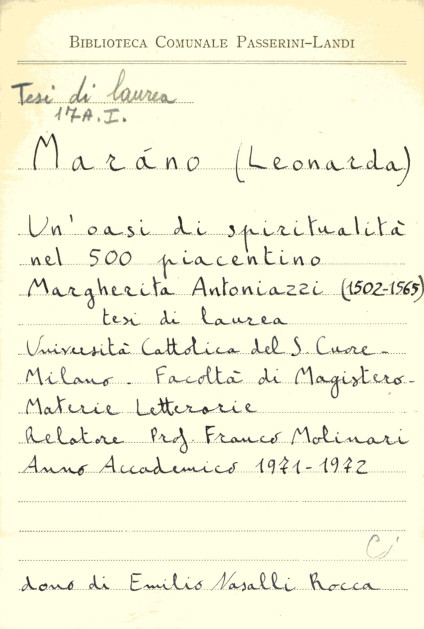 BIBLIOTECA COMUNALE PASSERINI-LANDI
Tesi di laurea
17A.I.
Maráno (Leonarda)
Un'oasi di spiritualità
nel 500 piacentino
Margherita Antoniazzi (1502-1565)
tesi di laurea
Università Cattolica del S. Cuore-
Milano. Facoltà di Magistero-
Materie Letterarie
Relatore Prof. Franco Molinari
Anno Accademico 1971-1972
dono di Emilio Nasalli Rocca